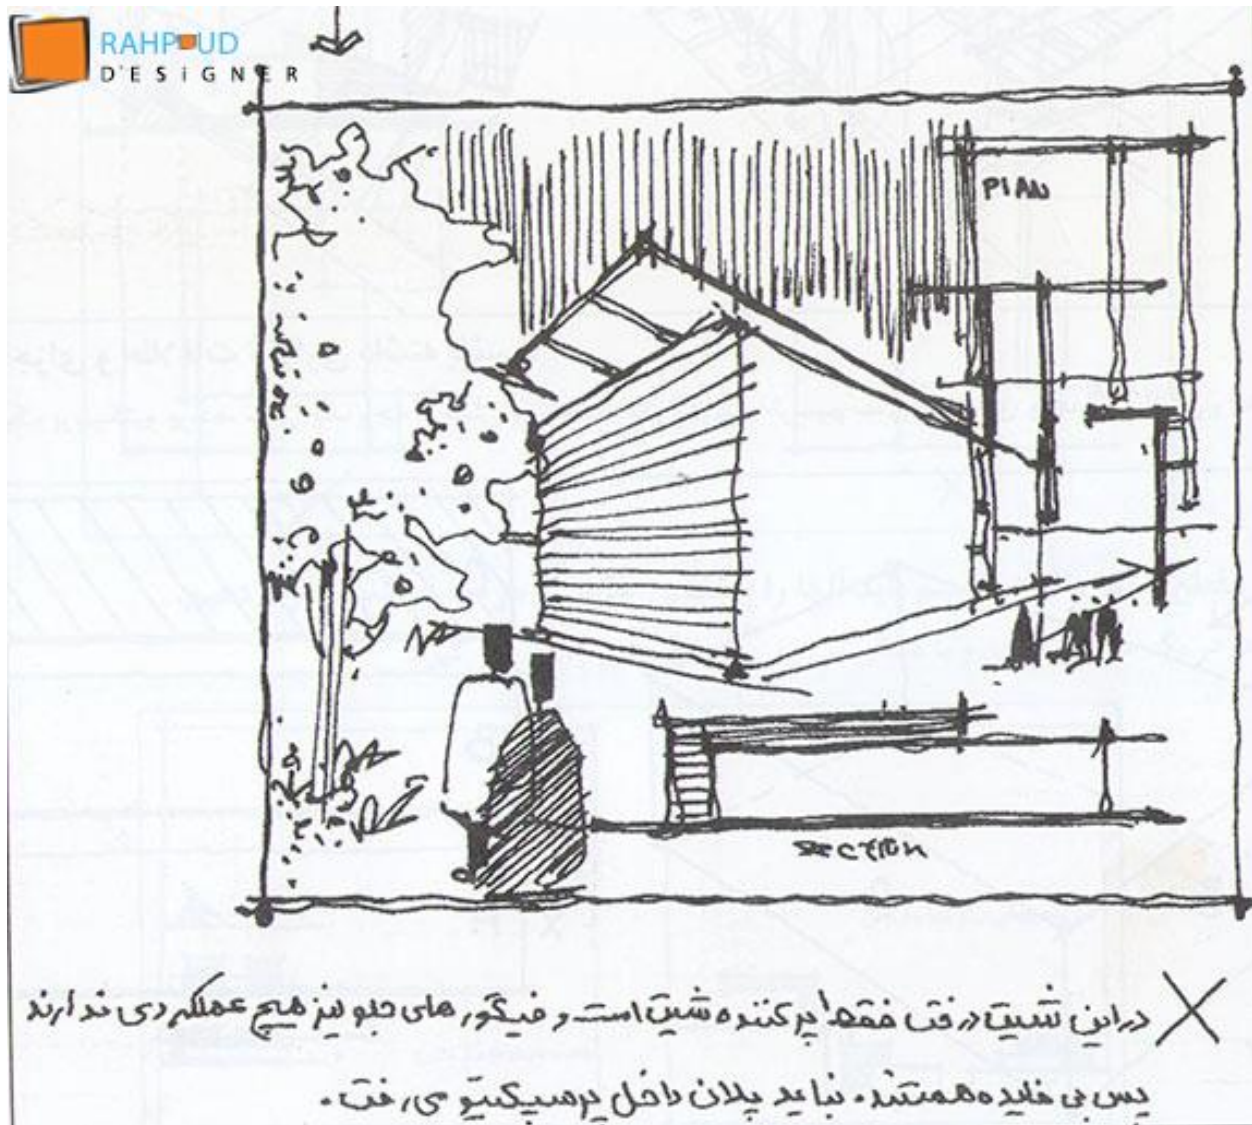 RAHPOUD
DESiGNER
PlAN
SECTION
در این شیت درخت فقط پر کننده شیت است و فیگور های جلو نیز هیچ عملکردی ندارند
پس بی فایده هستند. نباید پلان داخل پرسپکتیو می رفت.